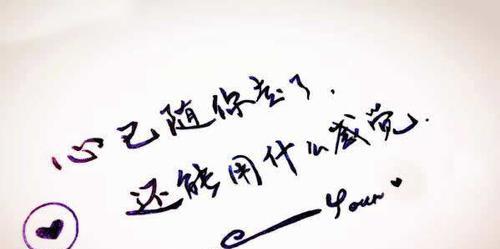 心已随你去了，
还能用什么感觉.
Your